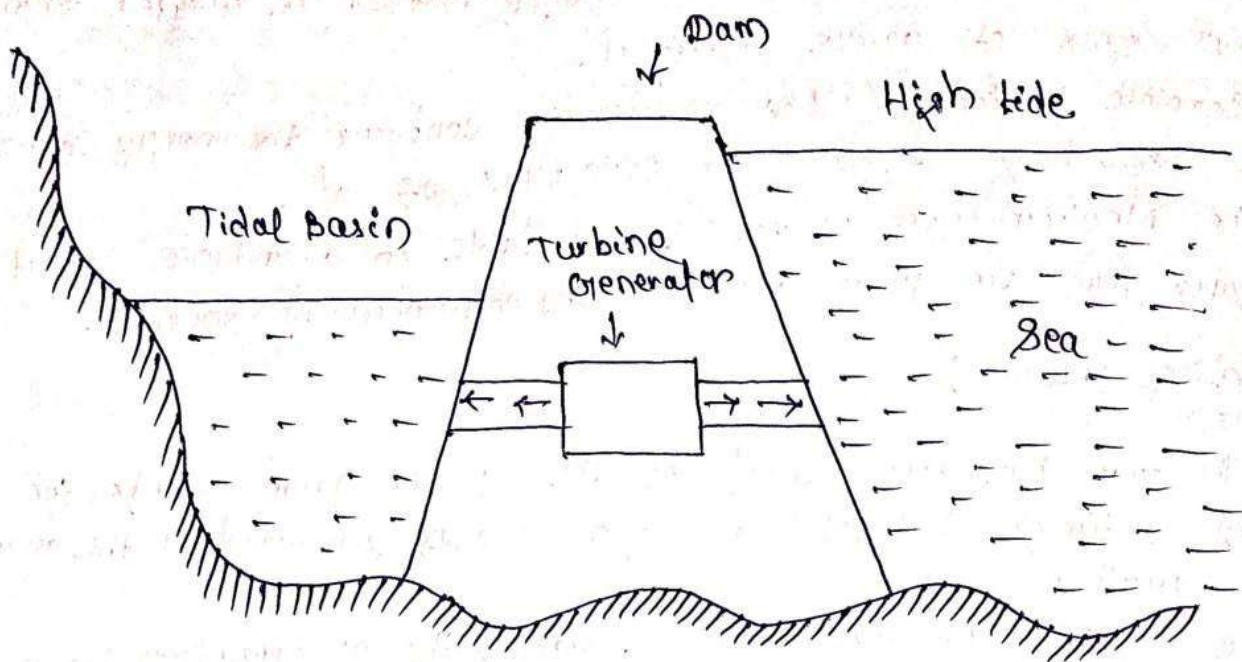 Dam
High tide
Tidal Basin
Turbine
Generator
Sea